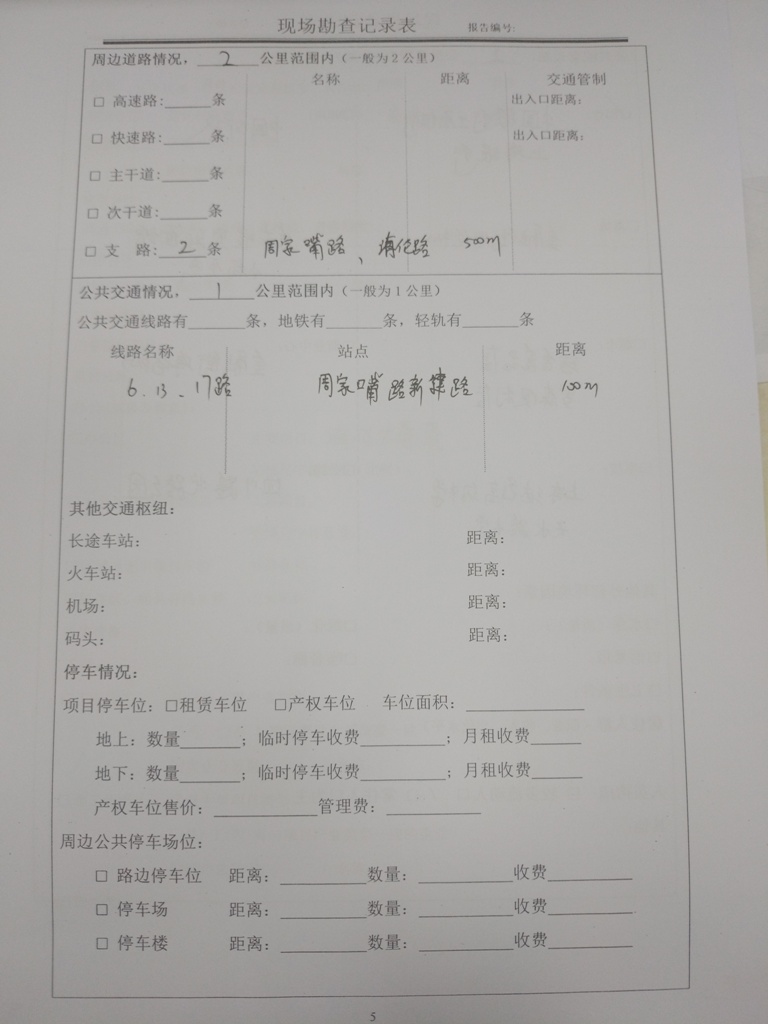 现场勘查记录表 报告编号:
周边道路情况，2公里范围内（一般为2公里）
名称 距离 交通管制
□ 高速路:______条 出入口距离:
□ 快速路:______条 出入口距离:
□ 主干道:______条
□ 次干道:______条
□ 支 路:2条 周家嘴路、海伦路 500m
公共交通情况，1公里范围内（一般为1公里）
公共交通线路有_______条，地铁有_______条，轻轨有_______条
线路名称 站点 距离
6、13、17路 周家嘴路新建路 100m
其他交通枢纽:
长途车站: 距离:
火车站: 距离:
机场: 距离:
码头: 距离:
停车情况:
项目停车位: □租赁车位 □产权车位 车位面积: ______________
地上: 数量_______; 临时停车收费__________; 月租收费______
地下: 数量_______; 临时停车收费__________; 月租收费______
产权车位售价: ____________管理费: ___________
周边公共停车场位:
□ 路边停车位 距离: __________数量: ___________收费__________
□ 停车场 距离: __________数量: ___________收费__________
□ 停车楼 距离: __________数量: ___________收费__________
5